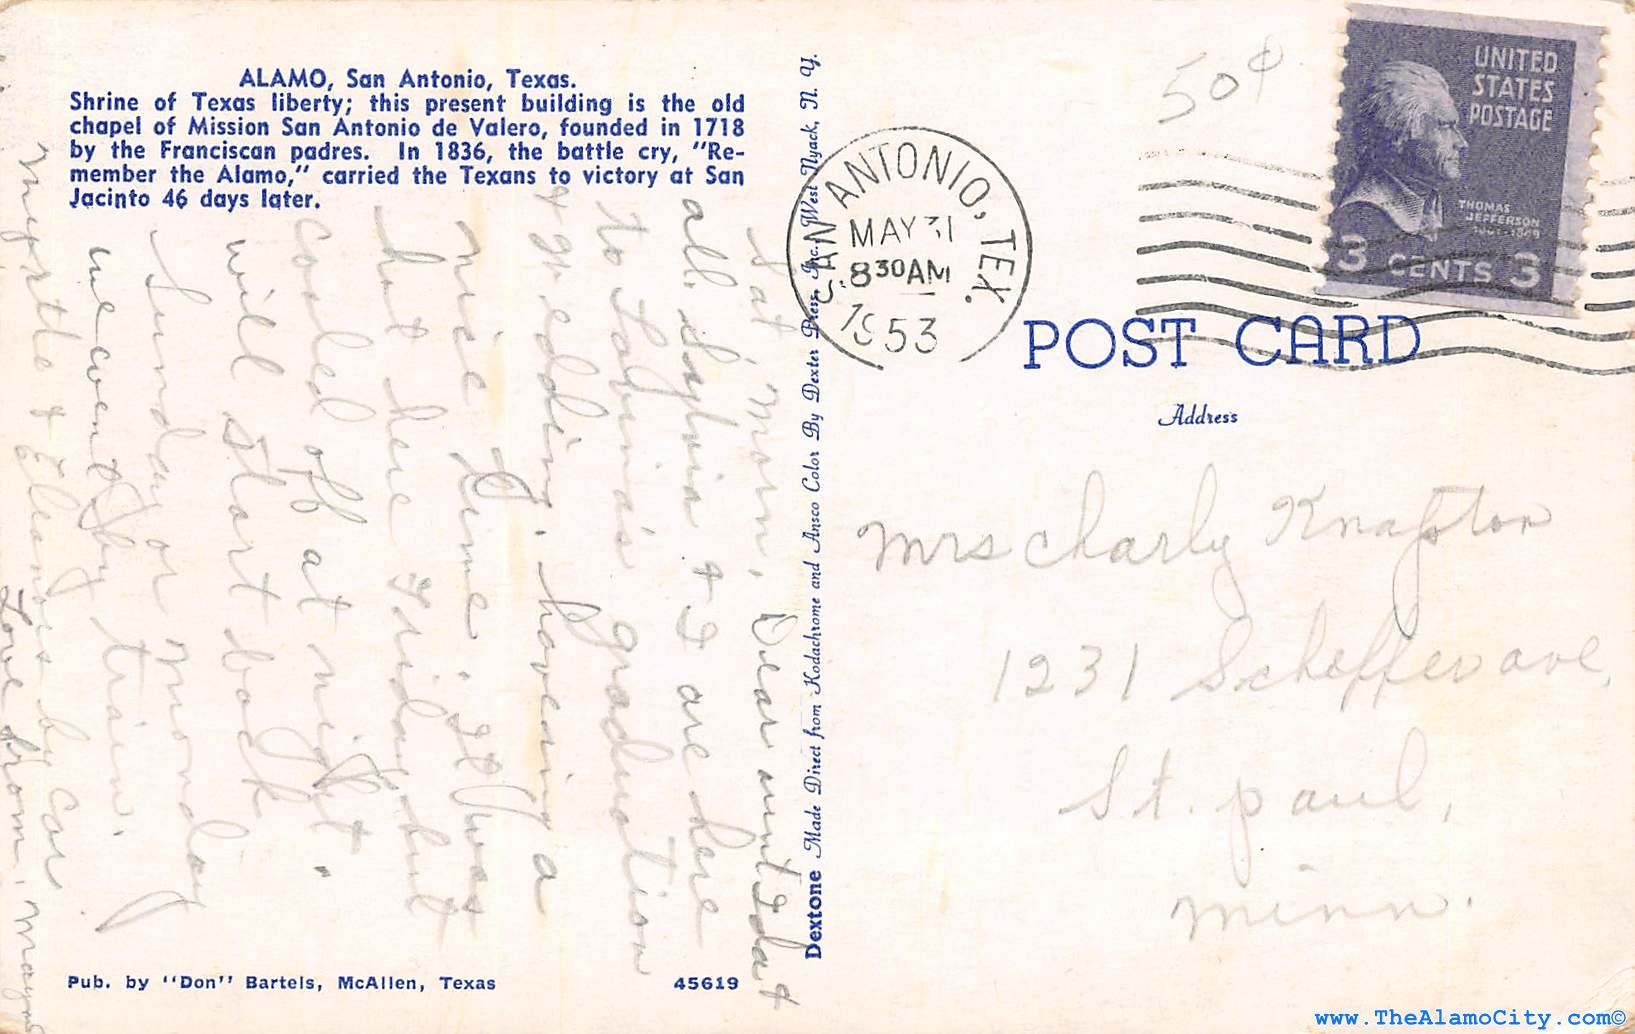 ALAMO, San Antonio, Texas.
Shrine of Texas liberty; this present building is the old
chapel of Mission San Antonio de Valero, founded in 1718
by the Franciscan padres. In 1836, the battle cry, "Re-
member the Alamo," carried the Texans to victory at San
Jacinto 46 days later.
Sat morn. Dear aunt Ida &
all. Sylvia & I are here
to Lavina's graduation
& wedding. having a
nice time. It was
hot here Friday but
cooled off at night.
will start back
Sunday or monday
we went by train.
Myrtle & Eleanors by car
Love from,
Pub. by "Don" Bartels, McAllen, Texas
45619
Dextone Made Direct from Kodachrome and Ansco Color By Dexter Press, Inc., West Nyack, N. Y.
SAN ANTONIO, TEX.
MAY 31
8 30 AM
1953
50¢
UNITED
STATES
POSTAGE
THOMAS
JEFFERSON
3 CENTS 3
POST CARD
Address
Mrs Charly Knafton
1231 Scheffer ave,
St. paul,
minn.
www.TheAlamoCity.com©